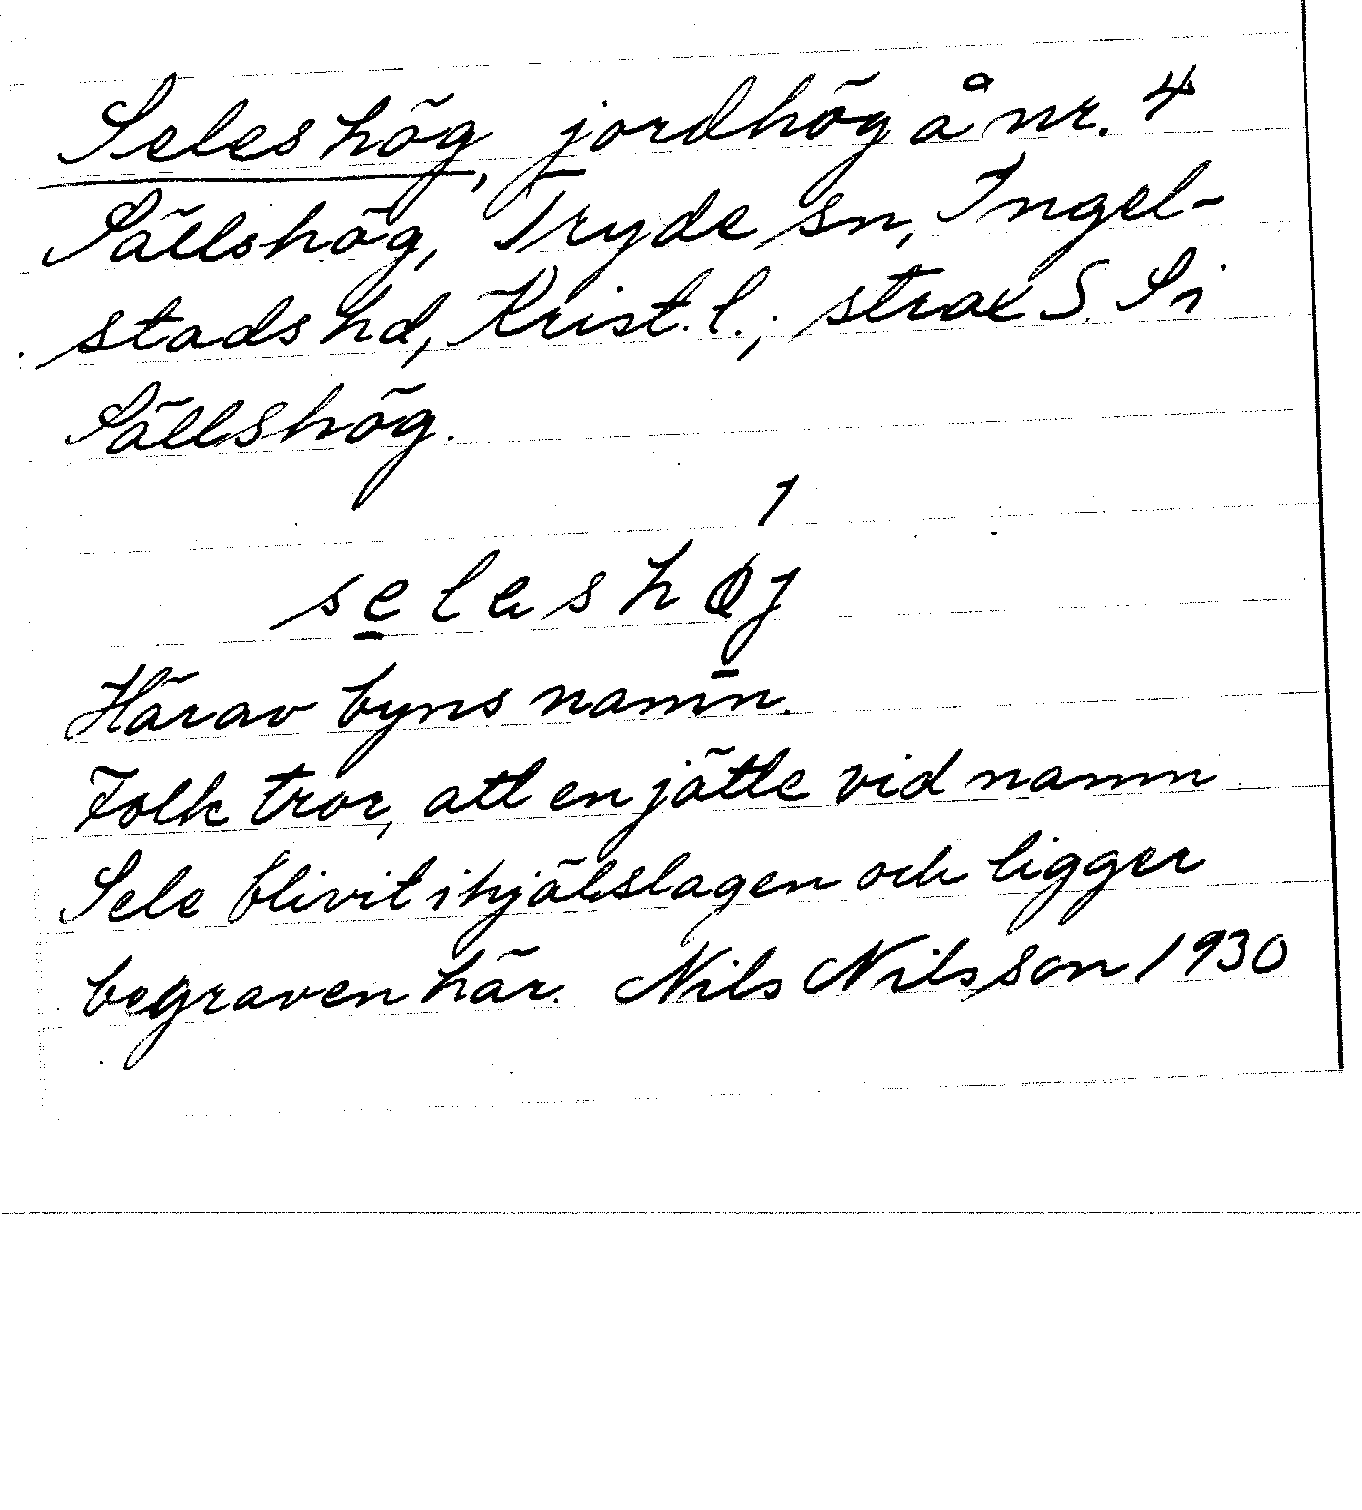 Seleshög, jordhög å nr. 4
Sällshög, Tryde sn, Ingel-
stads hd, Krist. l., strax S. Si
Sällshög.
1
seleshøj
Härav byns namn.
Folk tror, att en jätte vid namn
Sele blivit ihjälslagen och ligger
begraven här. Nils Nilsson 1930